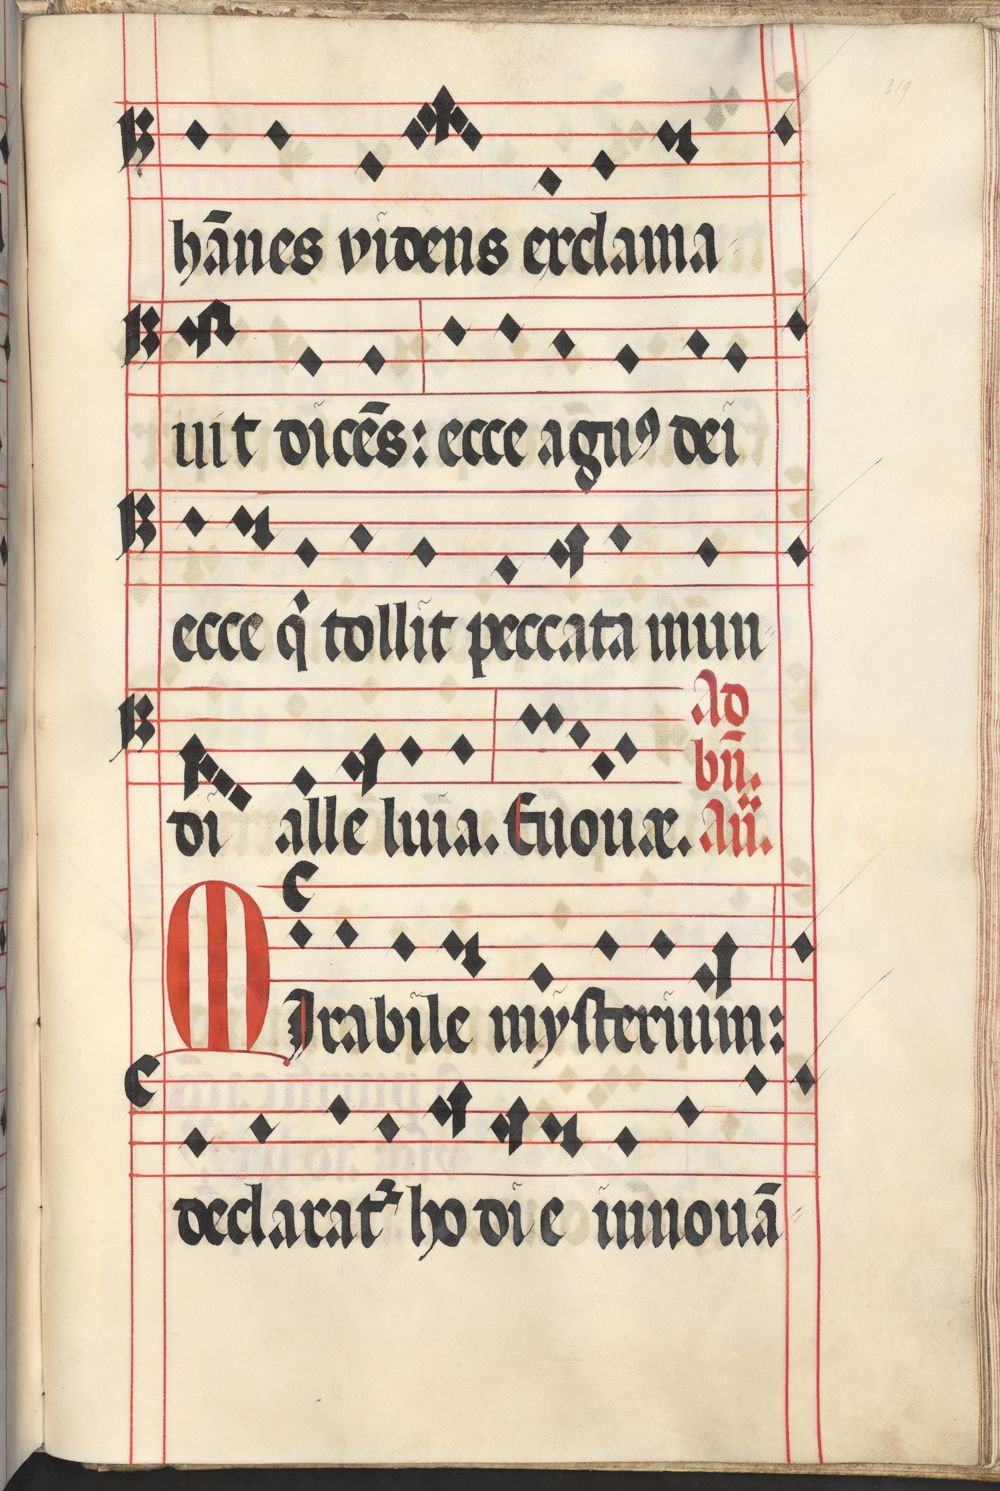 319
hānes videns exclama-
uit dicēs: ecce agnꝰ dei
ecce qͥ tollit peccata mun-
di alle luia. Euouæ. Ad bn̄. Añ.
MIrabile mysterium:
declarat᷑ hodie innouā-